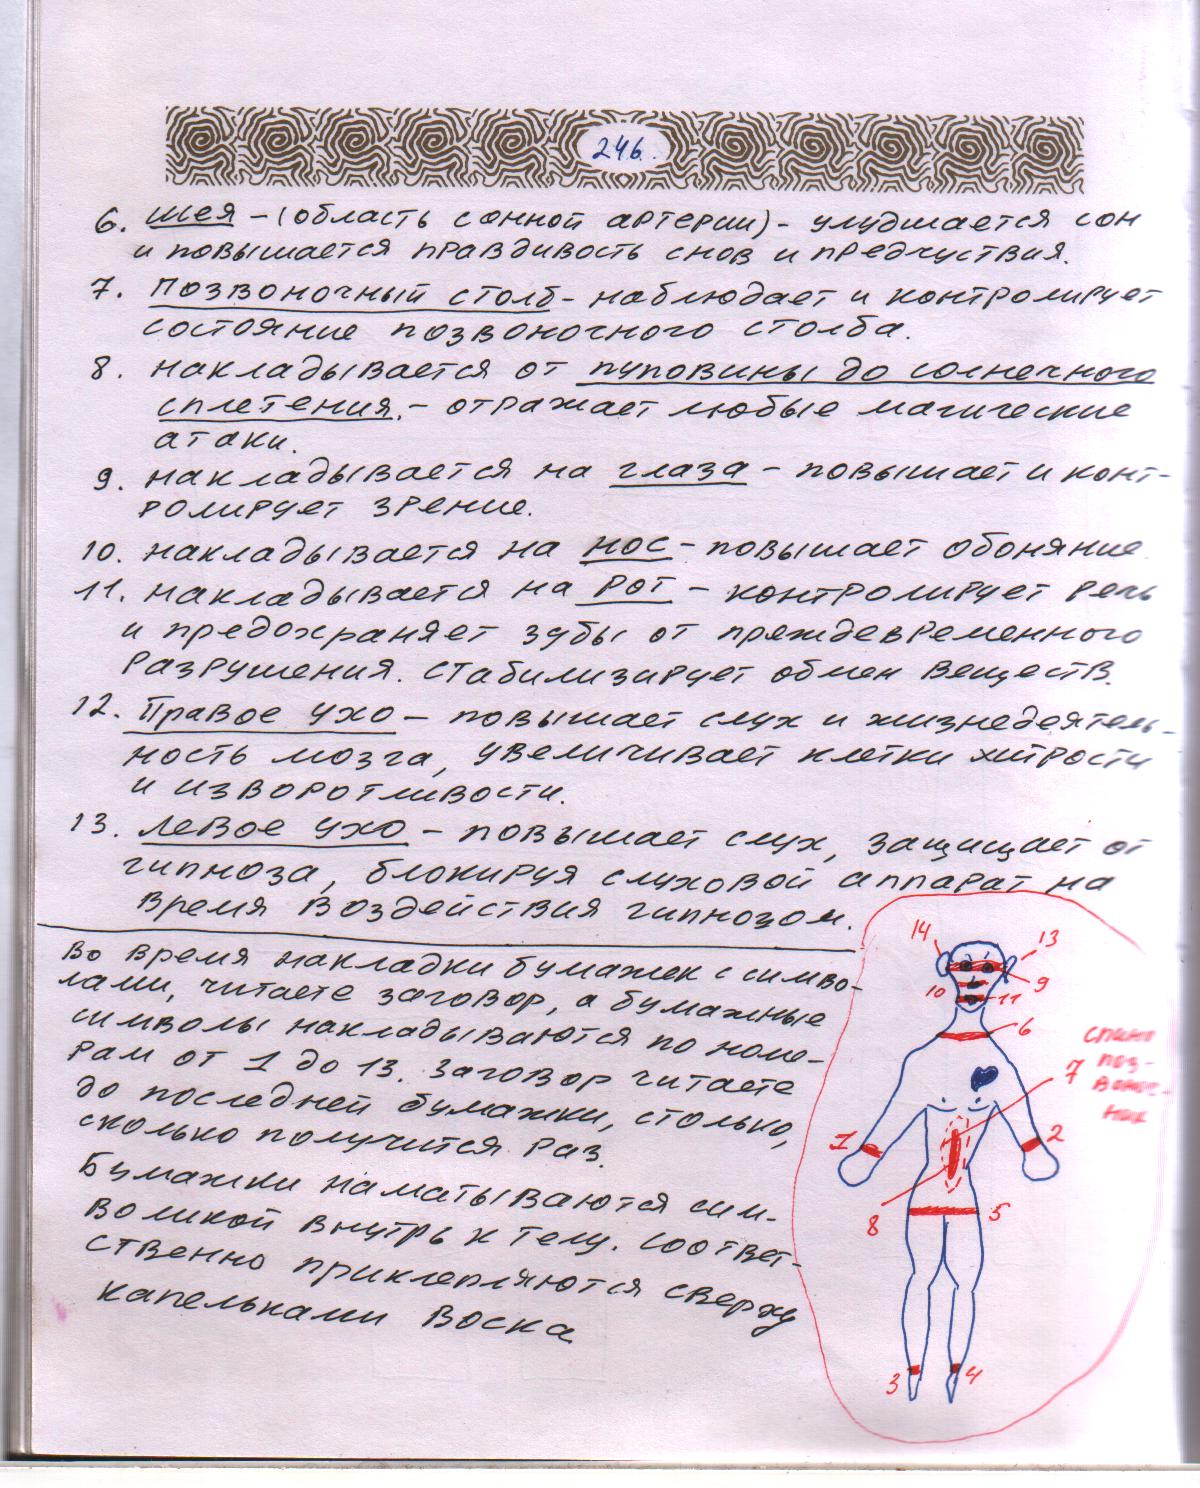 246.
6. шея - (область сонной артерии) - улудшается сон
и повышается правдивость снов и предчуствия.
7. позвоночный столб - наблюдает и контролирует
состояние позвоночного столба.
8. накладывается от пуповины до солнечного
сплетения. - отражает любые магические
атаки.
9. накладывается на глаза - повышает и конт-
ролирует зрение.
10. накладывается на нос - повышает обоняние.
11. накладывается на рот - контролирует речь
и предохраняет зубы от преждевременного
разрушения. стабилизирует обмен веществ.
12. Правое ухо - повышает слух и жизнедеятель-
ность мозга, увеличивает клетки хитрости
и изворотливости.
13. Левое ухо - повышает слух, защищает от
гипноза, блокируя слуховой аппарат на
время воздействия гипнозом.
Во время накладки бумажек с симво-
лами, читаете заговор, а бумажные
символы накладываются по номе-
рам от 1 до 13. Заговор читаете
до последней бумажки, столько,
сколько получится раз.
Бумажки наматываются сим-
воликой внутрь к телу. Соответ-
ственно приклепляются сверху
капельками воска
14
13
9
10
11
6
7
спино
поз-
воноч-
ник
1
2
8
5
3
4